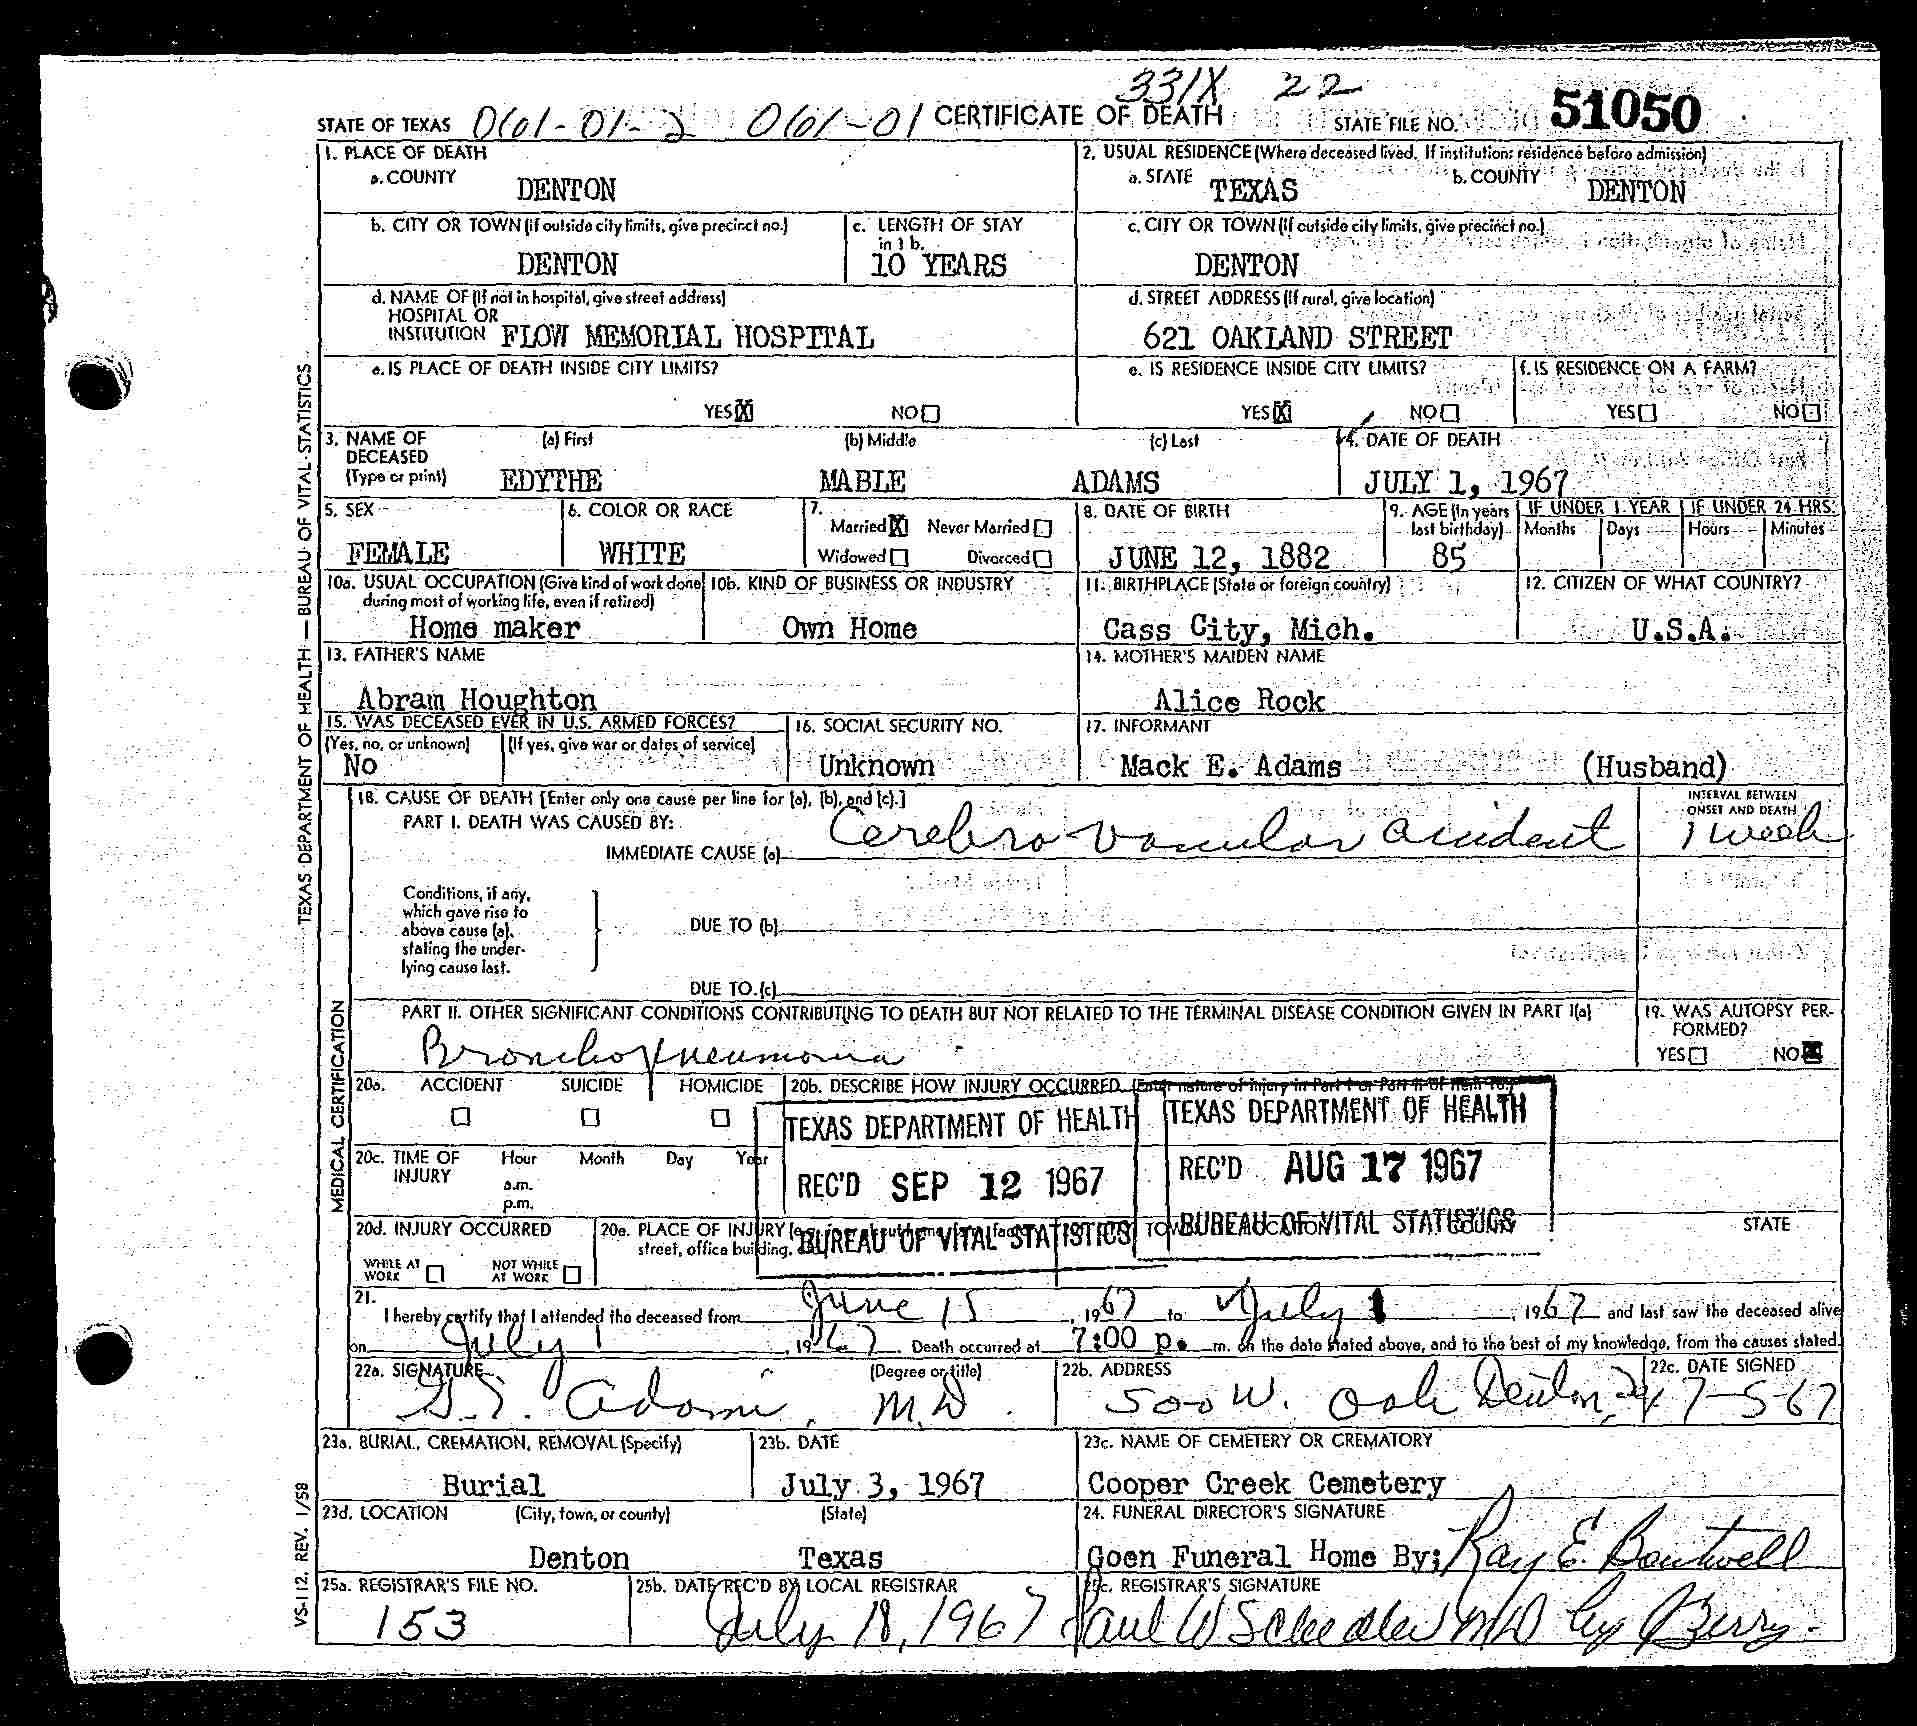 331X 22
STATE OF TEXAS 061-01-2 061-01 CERTIFICATE OF DEATH STATE FILE NO. 51050
1. PLACE OF DEATH
a. COUNTY DENTON
2. USUAL RESIDENCE (Where deceased lived. If institution: residence before admission)
a. STATE TEXAS b. COUNTY DENTON
b. CITY OR TOWN (If outside city limits, give precinct no.) DENTON
c. LENGTH OF STAY in 1 b. 10 YEARS
c. CITY OR TOWN (If outside city limits, give precinct no.) DENTON
d. NAME OF (If not in hospital, give street address)
HOSPITAL OR
INSTITUTION FLOW MEMORIAL HOSPITAL
d. STREET ADDRESS (If rural, give location)
621 OAKLAND STREET
e. IS PLACE OF DEATH INSIDE CITY LIMITS?
YES X NO
e. IS RESIDENCE INSIDE CITY LIMITS?
YES X NO
f. IS RESIDENCE ON A FARM?
YES NO
3. NAME OF DECEASED (Type or print)
(a) First (b) Middle (c) Last
EDYTHE MABLE ADAMS
4. DATE OF DEATH
JULY 1, 1967
5. SEX
FEMALE
6. COLOR OR RACE
WHITE
7. Married X Never Married
Widowed Divorced
8. DATE OF BIRTH
JUNE 12, 1882
9. AGE (In years last birthday)
85
IF UNDER 1 YEAR
Months Days
IF UNDER 24 HRS.
Hours Minutes
10a. USUAL OCCUPATION (Give kind of work done during most of working life, even if retired)
Home maker
10b. KIND OF BUSINESS OR INDUSTRY
Own Home
11. BIRTHPLACE (State or foreign country)
Cass City, Mich.
12. CITIZEN OF WHAT COUNTRY?
U.S.A.
13. FATHER'S NAME
Abram Houghton
14. MOTHER'S MAIDEN NAME
Alice Rock
15. WAS DECEASED EVER IN U.S. ARMED FORCES?
(Yes, no, or unknown) (If yes, give war or dates of service)
No
16. SOCIAL SECURITY NO.
Unknown
17. INFORMANT
Mack E. Adams (Husband)
18. CAUSE OF DEATH [Enter only one cause per line for (a), (b), and (c).]
PART I. DEATH WAS CAUSED BY:
IMMEDIATE CAUSE (a) Cerebro vascular accident
INTERVAL BETWEEN ONSET AND DEATH
1 week
Conditions, if any, which gave rise to above cause (a), stating the underlying cause last.
DUE TO (b)
DUE TO (c)
PART II. OTHER SIGNIFICANT CONDITIONS CONTRIBUTING TO DEATH BUT NOT RELATED TO THE TERMINAL DISEASE CONDITION GIVEN IN PART I(a)
Bronchopneumonia
19. WAS AUTOPSY PERFORMED?
YES NO X
20a. ACCIDENT SUICIDE HOMICIDE
20b. DESCRIBE HOW INJURY OCCURRED. (Enter nature of injury in Part I or Part II of item 18.)
TEXAS DEPARTMENT OF HEALTH
REC'D SEP 12 1967
BUREAU OF VITAL STATISTICS
TEXAS DEPARTMENT OF HEALTH
REC'D AUG 17 1967
BUREAU OF VITAL STATISTICS
20c. TIME OF INJURY
Hour Month Day Year
a.m.
p.m.
20d. INJURY OCCURRED
WHILE AT WORK NOT WHILE AT WORK
20e. PLACE OF INJURY
street, office building,
STATE
21.
I hereby certify that I attended the deceased from June 15, 1967 to July 1, 1967 and last saw the deceased alive
on July 1, 1967. Death occurred at 7:00 p. m. on the date stated above, and to the best of my knowledge, from the causes stated.
22a. SIGNATURE (Degree or title)
Adami, M.D.
22b. ADDRESS
500 W. Oak Denton,
22c. DATE SIGNED
7-5-67
23a. BURIAL, CREMATION, REMOVAL (Specify)
Burial
23b. DATE
July 3, 1967
23c. NAME OF CEMETERY OR CREMATORY
Cooper Creek Cemetery
23d. LOCATION (City, town, or county) (State)
Denton Texas
24. FUNERAL DIRECTOR'S SIGNATURE
Goen Funeral Home By; Ray E. Boutwell
25a. REGISTRAR'S FILE NO.
153
25b. DATE REC'D BY LOCAL REGISTRAR
July 18, 1967
25c. REGISTRAR'S SIGNATURE
Paul W MD by Berry
TEXAS DEPARTMENT OF HEALTH — BUREAU OF VITAL STATISTICS
MEDICAL CERTIFICATION
VS-112. REV. 1/58